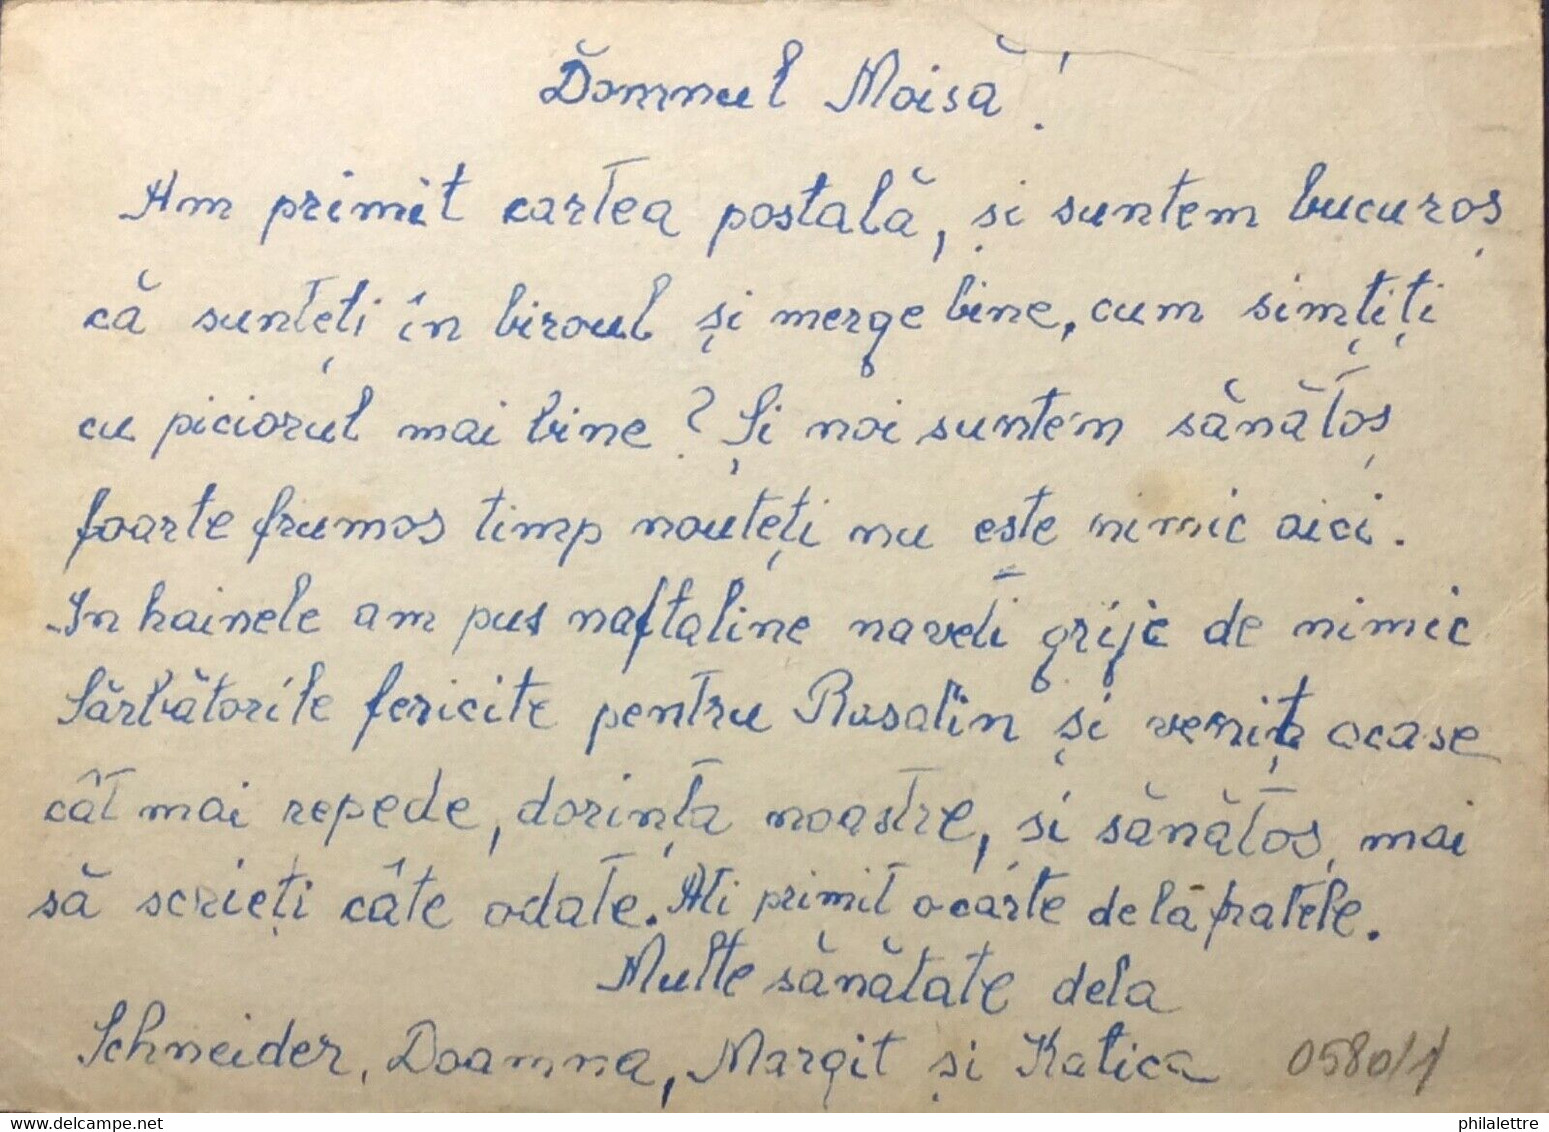 Domnul Moisă!
Am primit cartea postală, și suntem bucuroș
că sunteți în biroul și merge bine, cum simțiți
cu piciorul mai bine? Și noi suntem sănătoș
foarte frumos timp nouteți nu este nimic aici.
In hainele am pus naftaline naveti grije de nimic
Sărbătorile fericite pentru Rusalin și veniți acase
cât mai repede, dorința noastre, și sănătos, mai
să scrieți câte odate. Ati primit o carte dela fratele.
Multe sănătate dela
Schneider, Doamna, Margit și Katica
0580/1
www.delcampe.net
philalettre